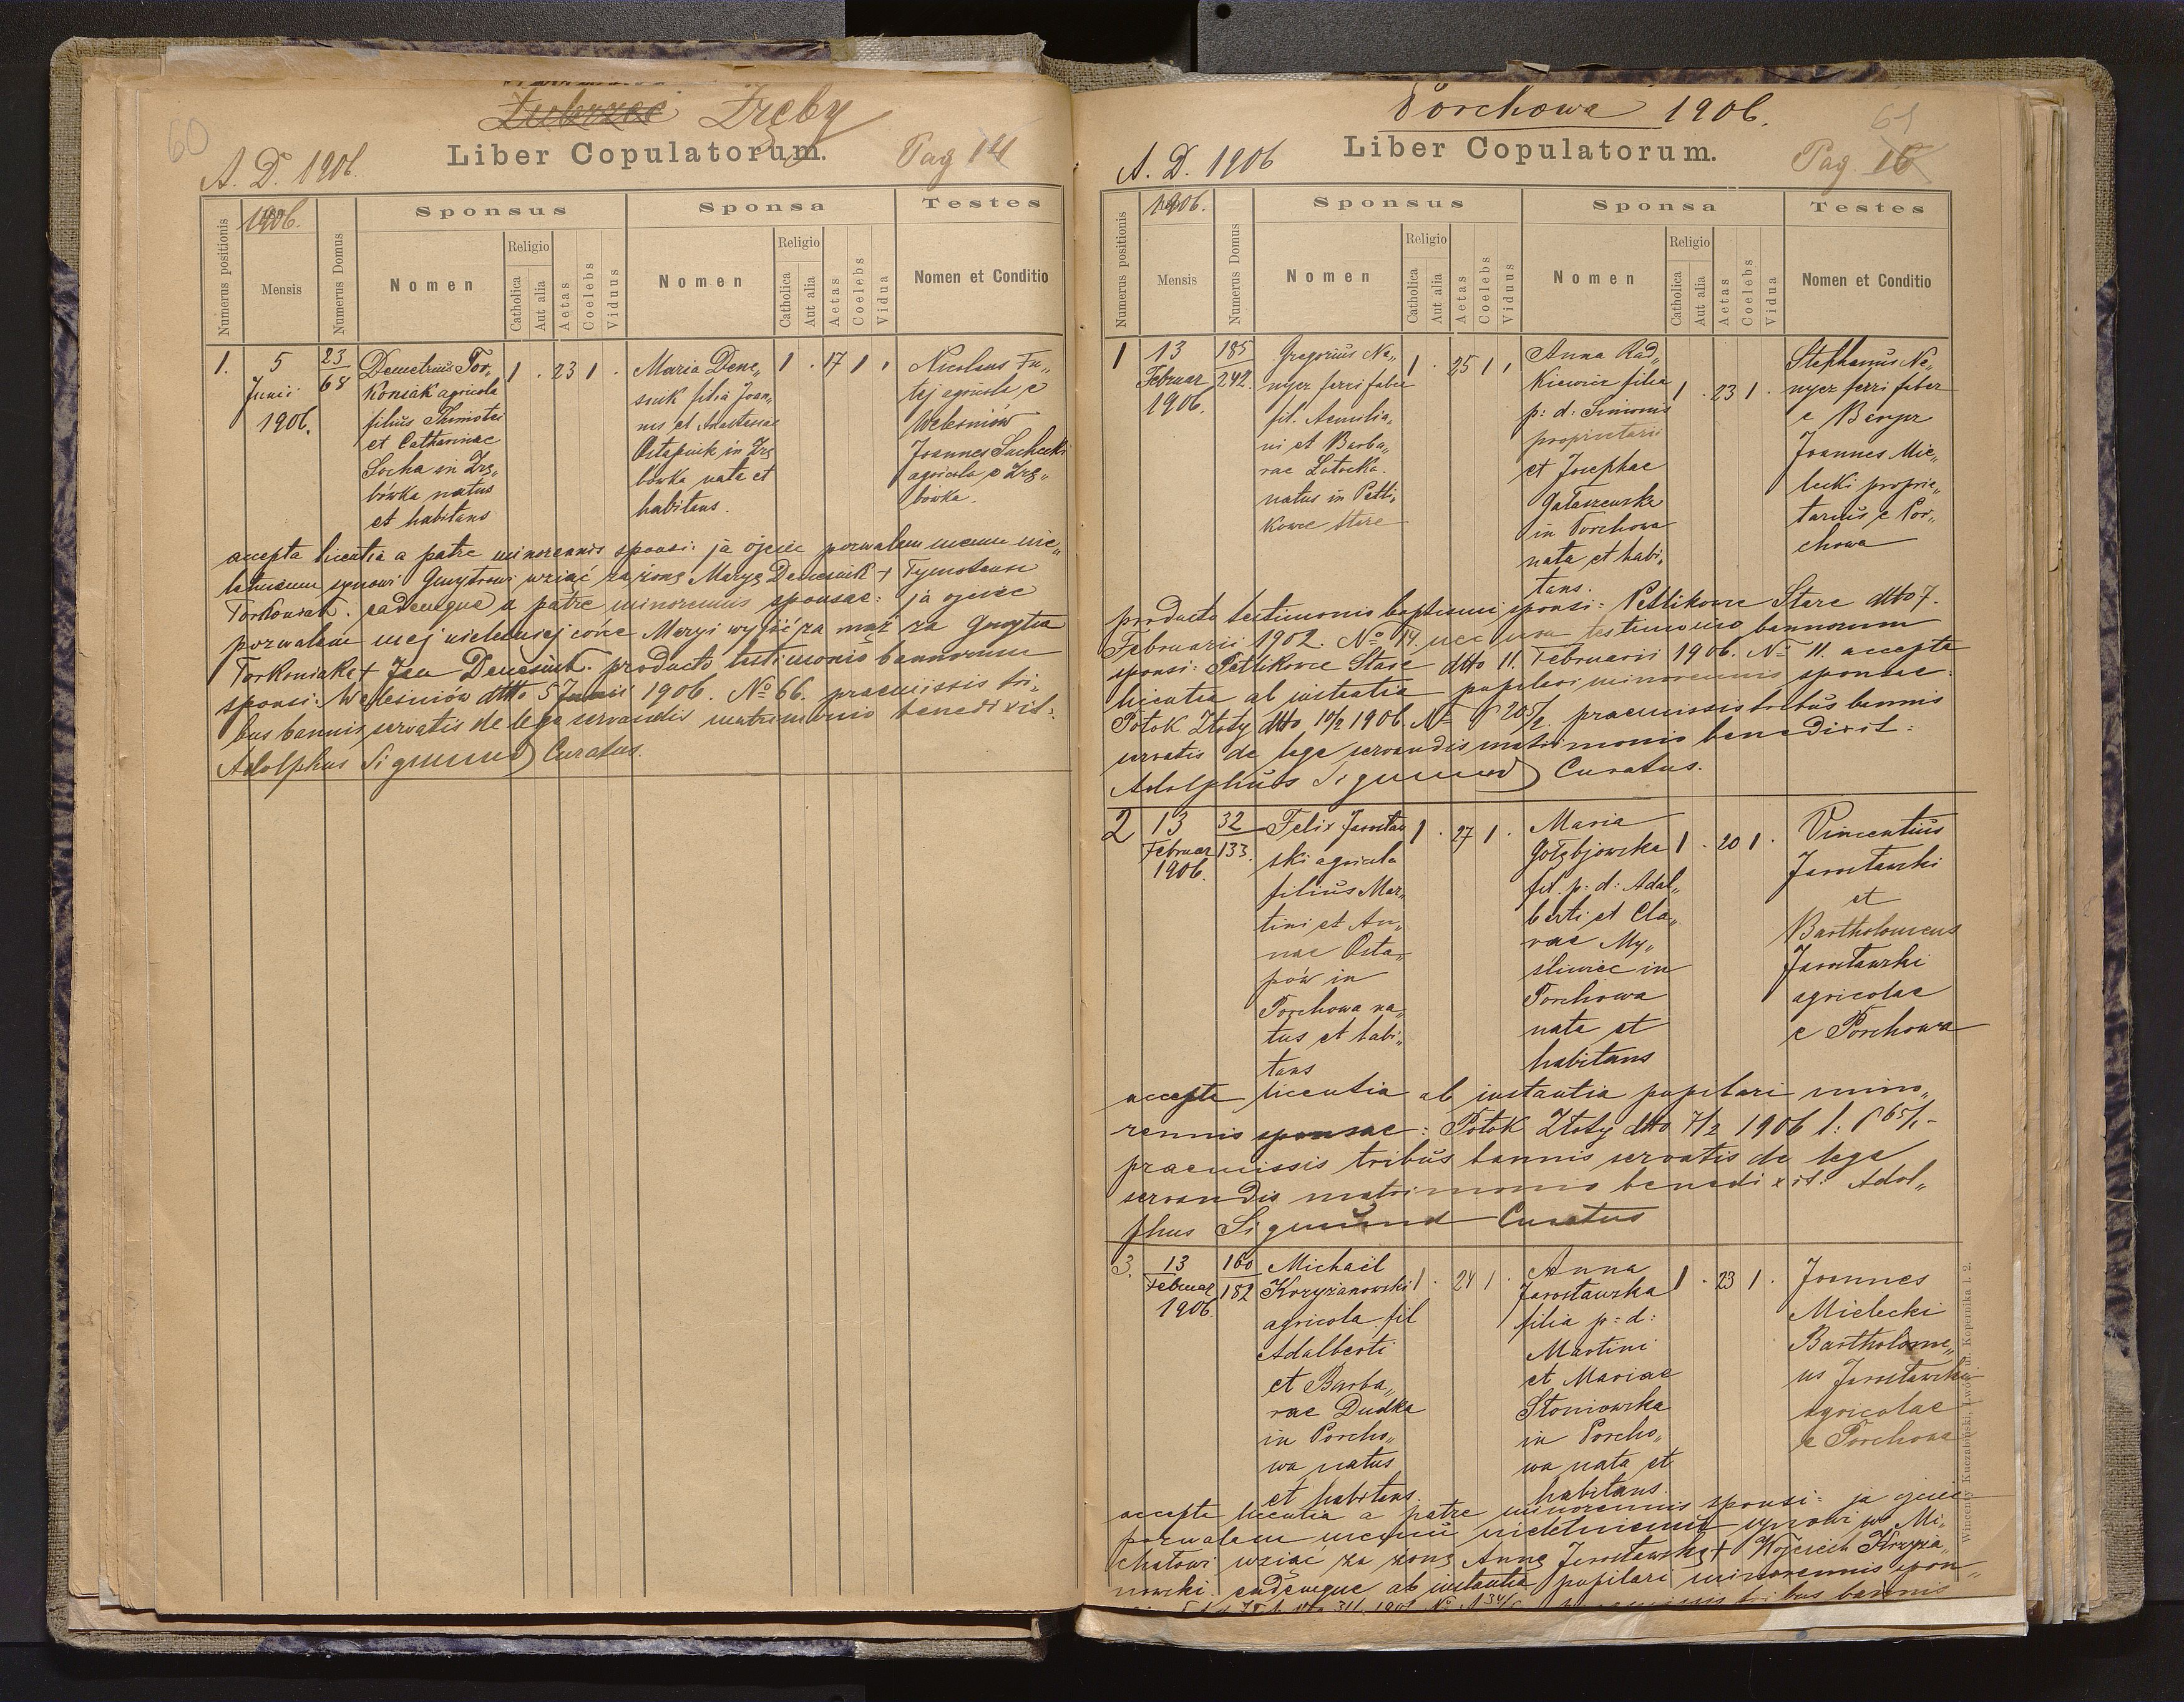 60
Zręby
A. D. 1906.
Liber Copulatorum.
Pag 14
Numerus positionis
1906.
Mensis
Numerus Domus
Sponsus
Nomen
Religio
Catholica
Aut alia
Aetas
Coelebs
Viduus
Sponsa
Nomen
Religio
Catholica
Aut alia
Aetas
Coelebs
Vidua
Testes
Nomen et Conditio
1.
5
Junii
1906.
23
68
Demetrius Tor„
Koniak agricola
filius Thimotei
et Catharinae
Socha in Zrę„
bówka natus
et habitans
1 . 23 1 .
Maria Dene„
siuk filia Joan„
nis et Anastasiae
Ostapiuk in Zrę
bówka nata et
habitans.
1 . 17 1 .
Nicolaus Fu„
tej agricola e
Weleśniów
Joannes Suchecki
agricola e Zrę„
bówka.
accepta licentia a patre minorennis sponsi: ja ojciec pozwalam memu nie„
letniemu synowi Gmytrowi wziąć za żonę Maryę Denesiuk + Tymoteusz
Torkoniak. eademque a patre minorennis sponsae: ja ojciec
pozwalam mej nieletniej córce Maryi wyjść za mąż za Gmytra
Torkoniaka + Jan Denesiuk. producto testimonio bannorum
sponsi: Weleśniów dtto 5 Junii 1906. No 66. praemissis tri„
bus bannis servatis de lege servandis matrimonio benedixit:
Adolphus Sigmund Curatus.
Porchowa 1906.
61
A. D. 1906
Liber Copulatorum.
Pag. 16
Numerus positionis
1906.
Mensis
Numerus Domus
Sponsus
Nomen
Religio
Catholica
Aut alia
Aetas
Coelebs
Viduus
Sponsa
Nomen
Religio
Catholica
Aut alia
Aetas
Coelebs
Vidua
Testes
Nomen et Conditio
1
13
Februar
1906.
185
242.
Gregorius Na„
nycz ferri faber
fil. Aemilia„
ni et Barba„
rae Lotocka.
natus in Petli„
Kowce stare
1 . 25 1 .
Anna Rad„
Kiewicz filia
p: d: Simionis
proprietarii
et Josephae
Gałaszewska
in Porchowa
nata et habi„
tans.
1 . 23 1 .
Stephanus Na„
nycz ferri faber
e
Joannes Mie„
lecki proprie„
tarius e Por„
chowa
producto testimonio baptismi sponsi: Petlikowce Stare dtto 7.
Februarii 1902. No 14. nec non testimonio bannorum
sponsi: Petlikowce Stare dtto 11. Februarii 1906. No 11. accepta
licentia ab instantia pupilari minorennis sponsae:
Potok Złoty dtto 10/2 1906 No P 205/2. praemissis tribus bannis
servatis de lege servandis matrimonio benedixit:
Adolphus Sigmund Curatus.
2
13
Februar
1906.
32
133.
Felix Jarosław
ski agricola
filius Mar„
tini et An„
nae Osta„
pów in
Porchowa na„
tus et habi„
tans
1 . 27 1 .
Maria
Gołębjowska
fil. p: d: Adal„
berti et Cla„
rae My„
śliwiec in
Porchowa
nata et
habitans
1 . 20 1 .
Vincentius
Jarosławski
et
Bartholomeus
Jarosławski
agricolae
e Porchowa
accepta licentia ab instantia pupilari mino„
rennis sponsae: Potok Złoty dtto 7/2 1906 l: P 65/1 -
praemissis tribus bannis servatis de lege
servandis matrimonio benedixit: Adol„
phus Sigmund Curatus
3.
13
Februar
1906
160
182
Michaël
Krzyżanowski
agricola fil
Adalberti
et Barba„
rae Dudka
in Porcho„
wa natus
et habitans.
1 . 24 1 .
Anna
Jarosławska
filia p: d:
Martini
et Mariae
Słoniowska
in Porcho„
wa nata et
habitans.
1 . 23 1 .
Joannes
Mielecki
Bartholome„
us Jarosławski
agricolae
e Porchowa
accepta licentia a patre minorennis sponsi: ja ojciec
pozwalam memu nieletniemu synowi Mi„
chałowi wziąć za żonę Annę Jarosławską + Wojciech Krzyża„
nowski. eademque ab instantia pupilari minorennis spon„
tribus bannis
Wincenty Kuczabiński, Lwów ul. Kopernika l. 2.